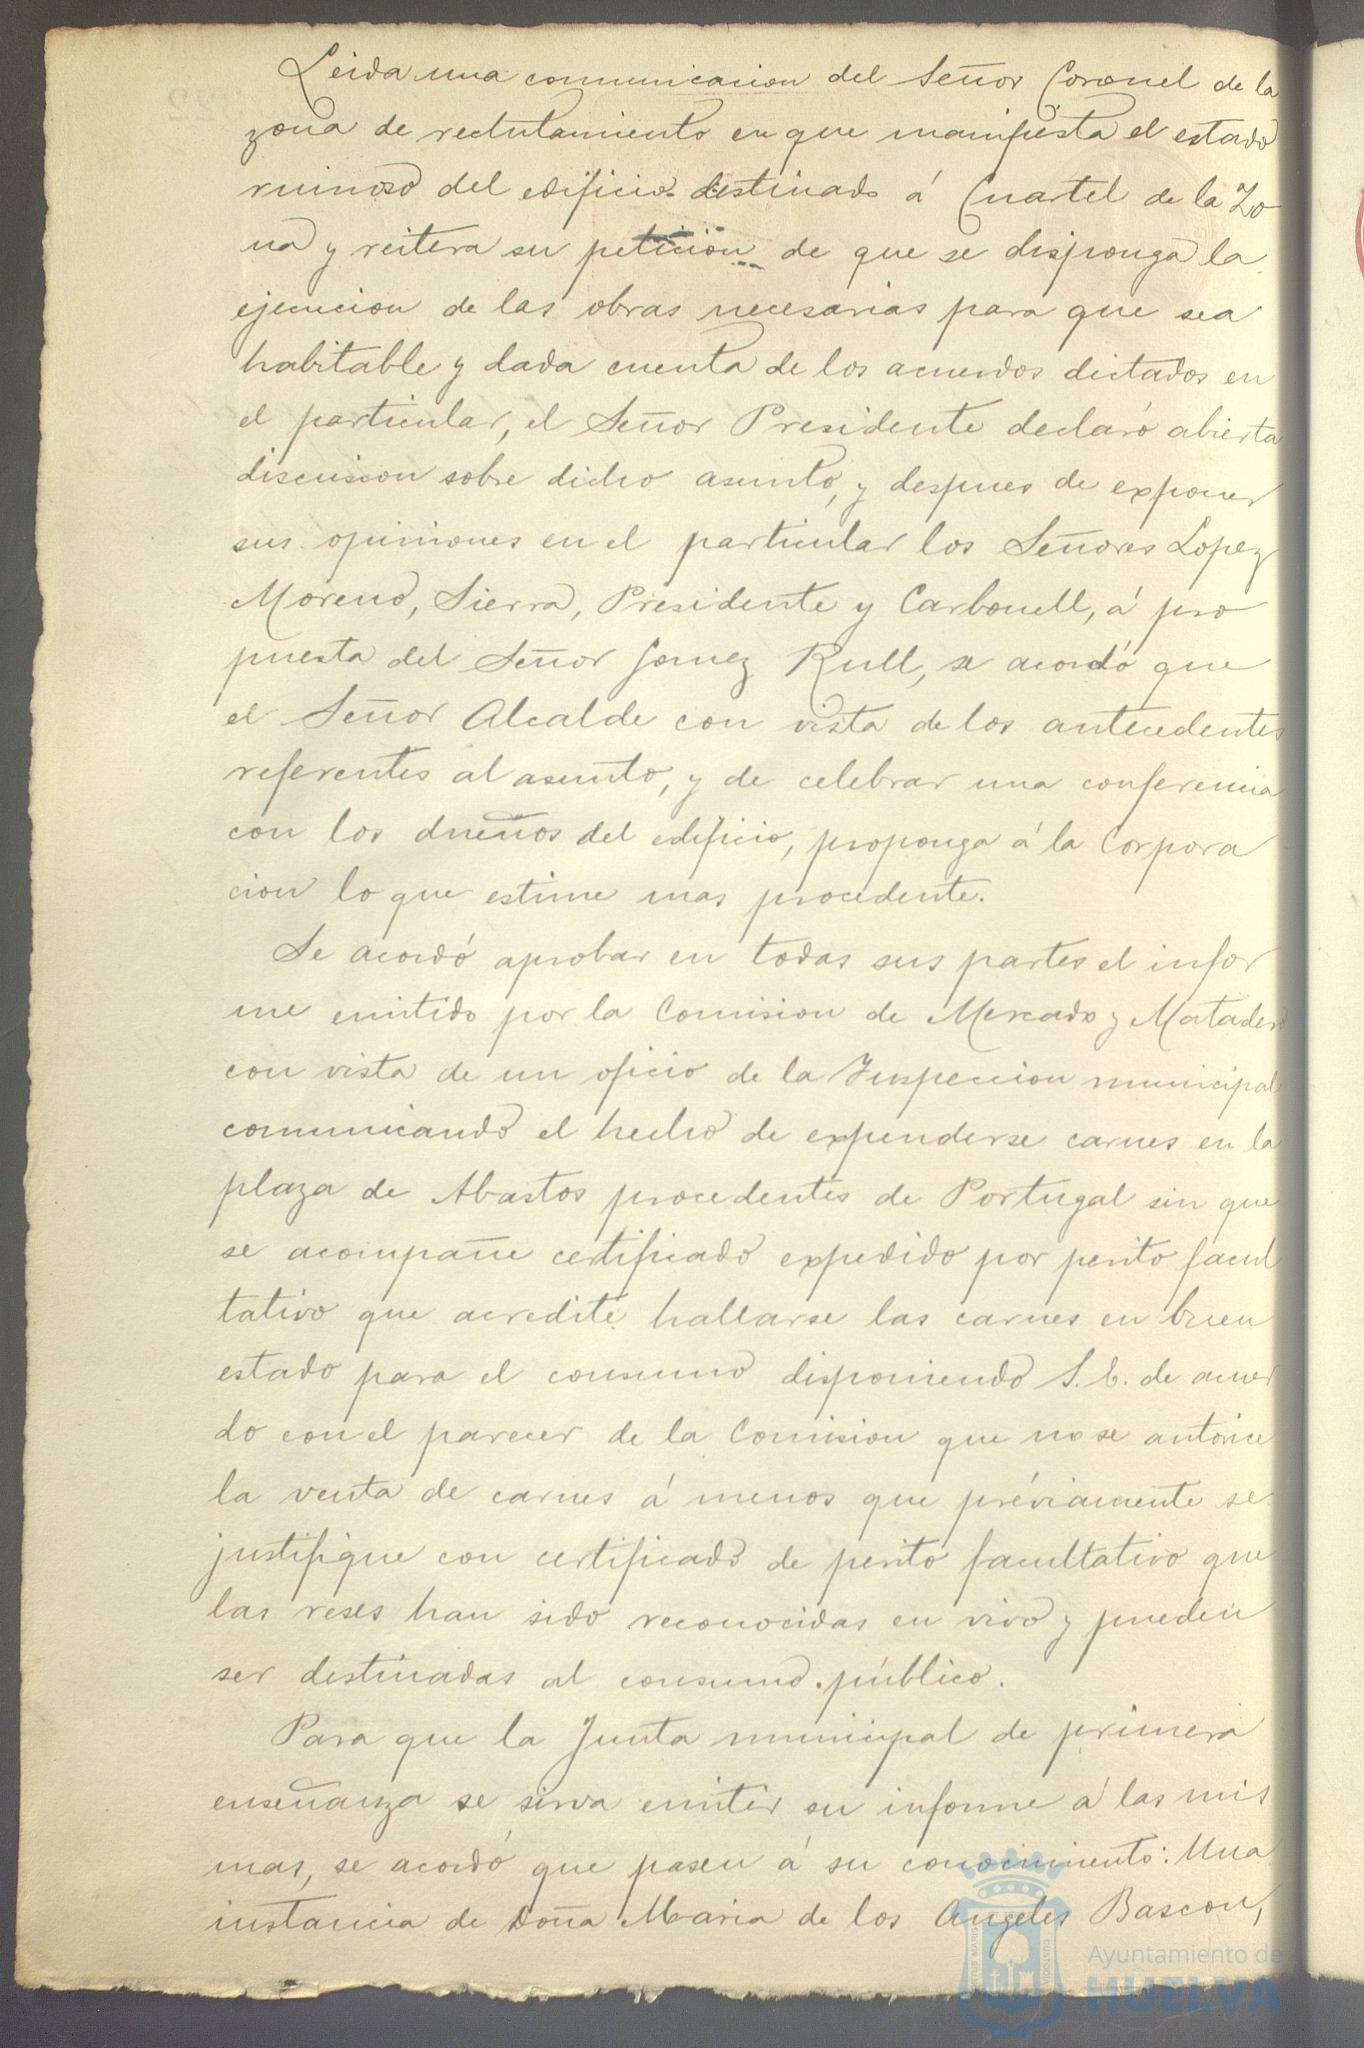 Leida una comunicacion del Señor Coronel de la
zona de reclutamiento en que manifiesta el estado
ruinoso del edificio destinado á Cuartel de la Zo
na y reitera su peticion de que se disponga la
ejecucion de las obras necesarias para que sea
habitable y dada cuenta de los acuerdos dictados en
el particular, el Señor Presidente declaró abierta
discusion sobre dicho asunto, y despues de exponer
sus opiniones en el particular los Señores Lopez
Moreno, Sierra, Presidente y Carbonell, á pro
puesta del Señor Gomez Rull, se acordó que
el Señor Alcalde con vista de los antecedentes
referentes al asunto, y de celebrar una conferencia
con los dueños del edificio, proponga á la Corpora
cion lo que estime mas procedente.
Se acordó aprobar en todas sus partes el infor
me emitido por la Comision de Mercado y Matadero
con vista de un oficio de la Inspeccion municipal
comunicando el hecho de expenderse carnes en la
plaza de Abastos procedentes de Portugal sin que
se acompañe certificado expedido por perito facul
tativo que acredite hallarse las carnes en buen
estado para el consumo disponiendo S.E. de acuer
do con el parecer de la Comision que no se autorice
la venta de carnes á menos que préviamente se
justifique con certificado de perito facultativo que
las reses han sido reconocidas en vivo y pueden
ser destinadas al consumo público.
Para que la Junta municipal de primera
enseñanza se sirva emitir su informe á las mis
mas, se acordó que pasen á su conocimiento: Una
instancia de Doña Maria de los Angeles Bascon,
Ayuntamiento de
HUELVA